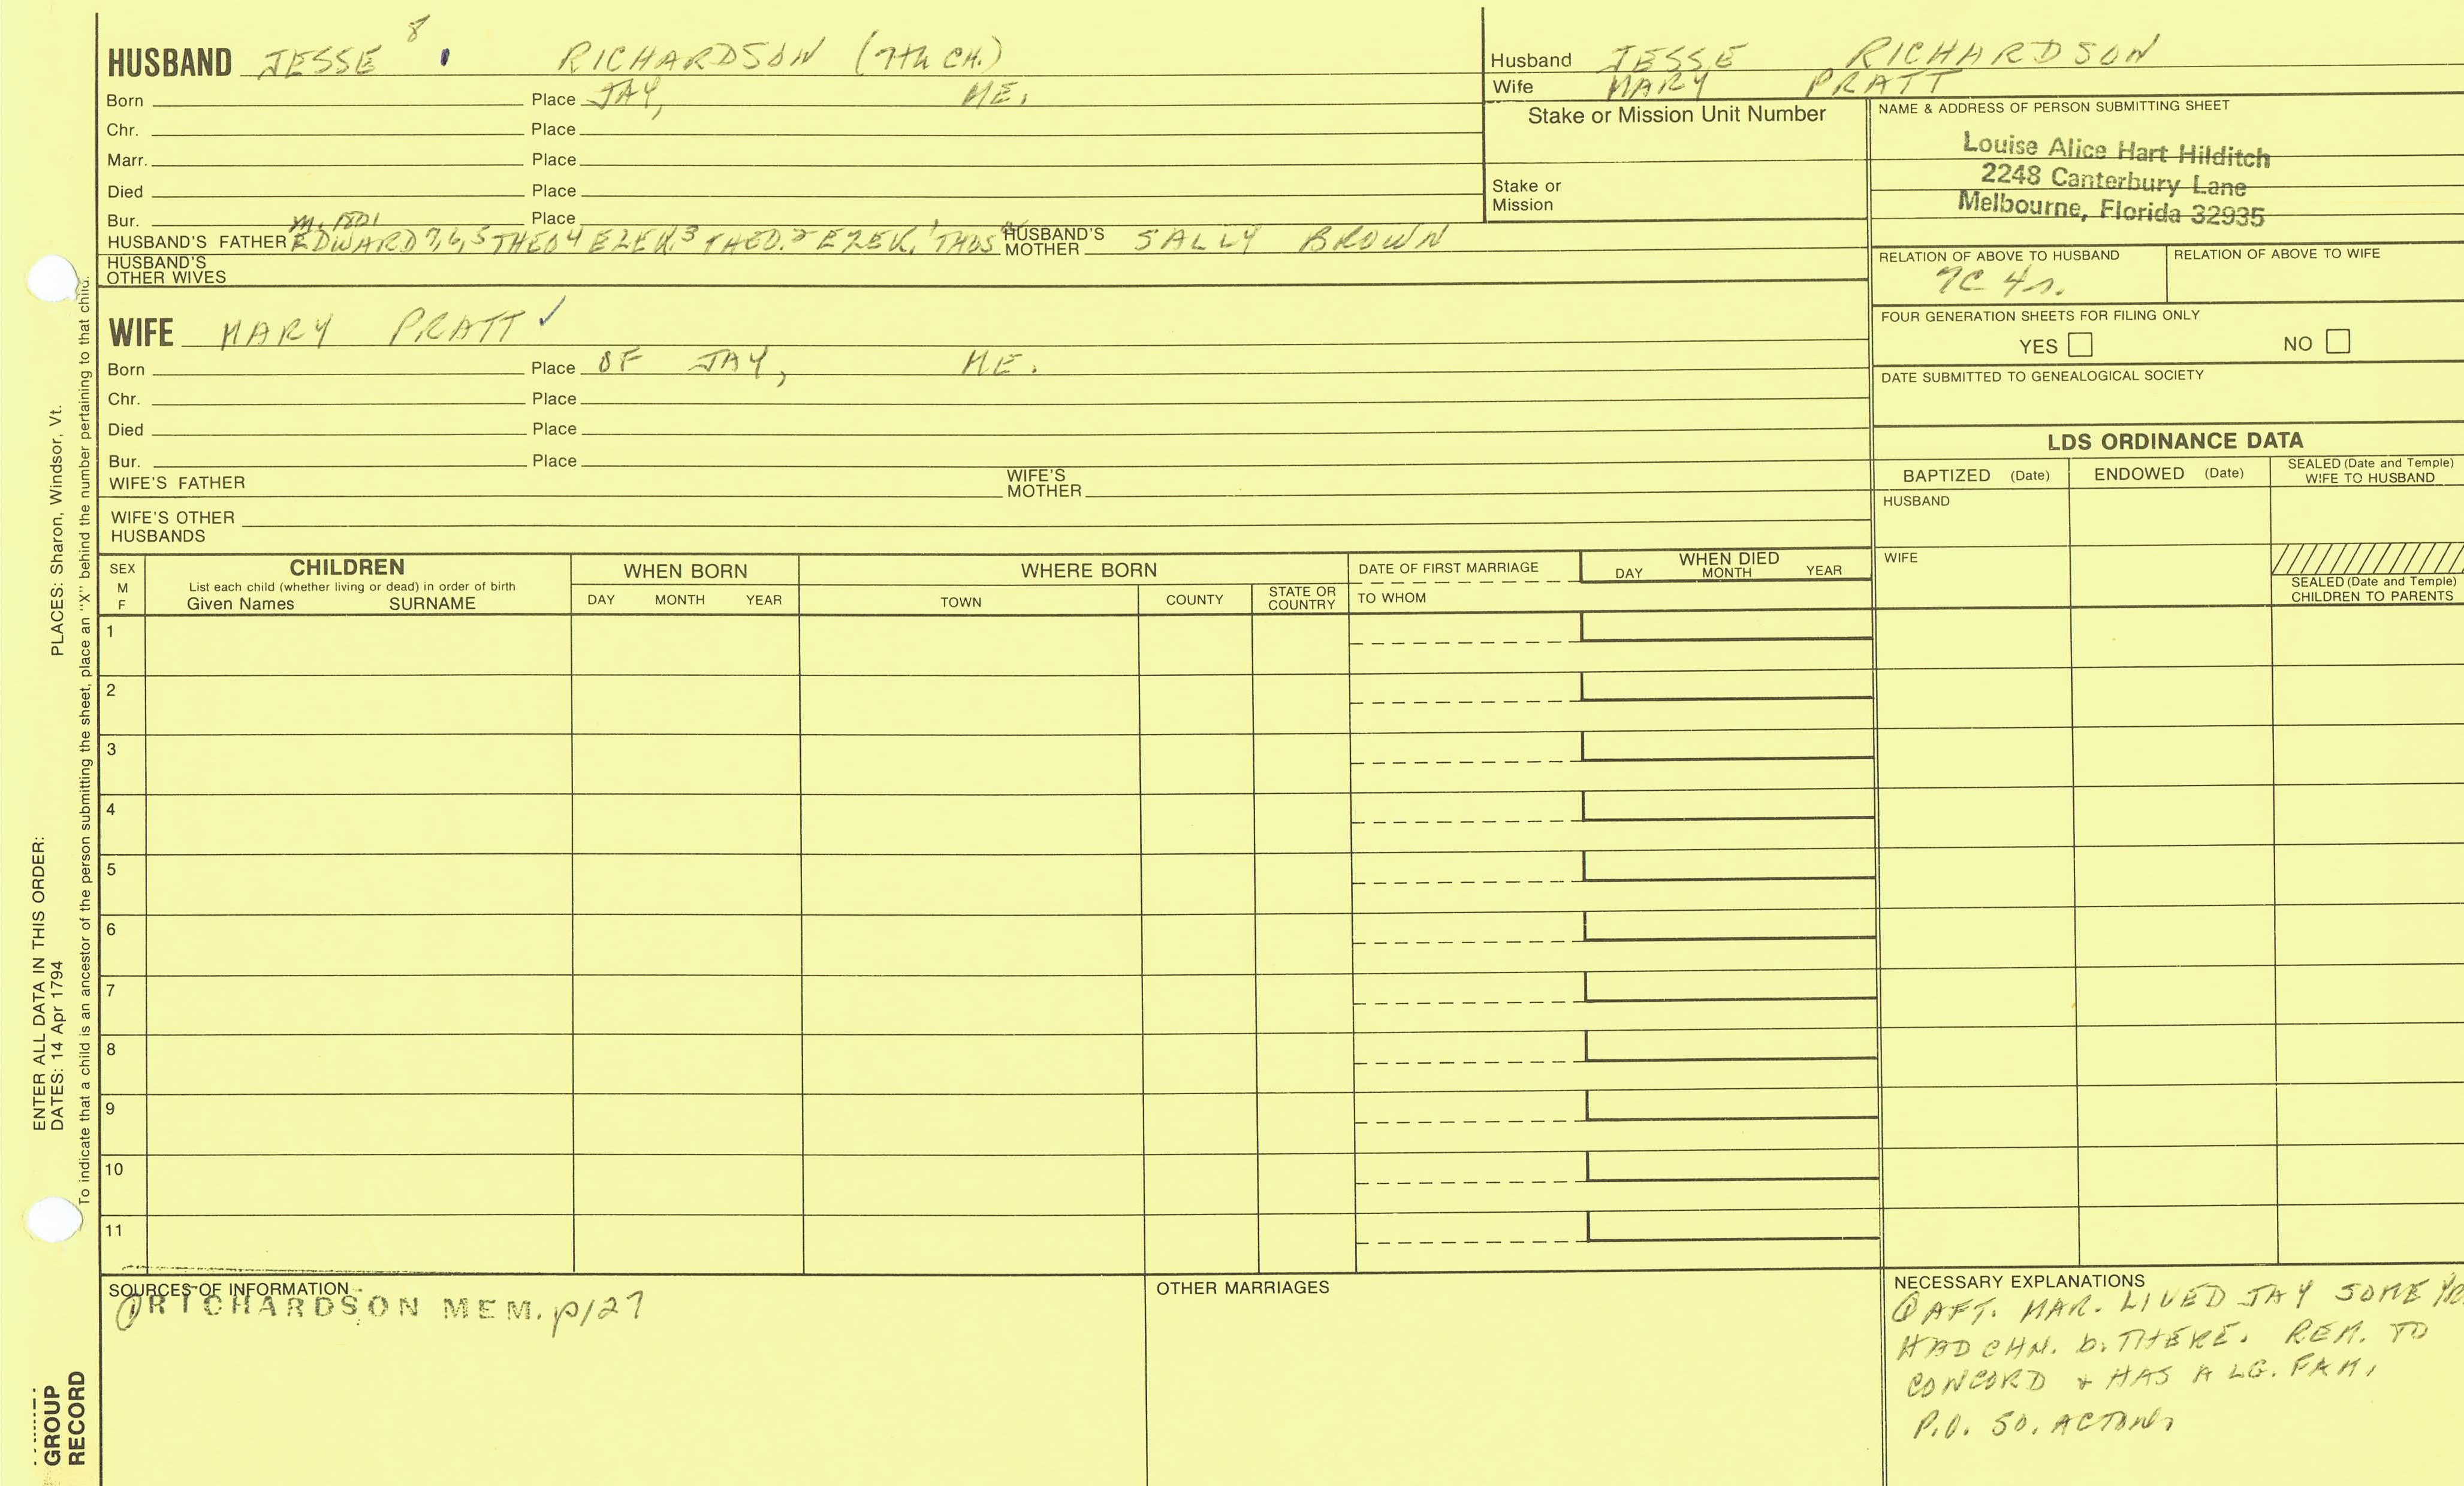 8
HUSBAND JESSE RICHARDSON (7th CH.)
Born Place JAY, ME.
Chr. Place
Marr. Place
Died Place
Bur. Place
HUSBAND'S FATHER EDWARD 7, 6, 5 THEO 4 EZEK. 3 THEO. 2 EZEK, 1 THOS HUSBAND'S MOTHER SALLY BROWN
HUSBAND'S OTHER WIVES
WIFE MARY PRATT ✓
Born Place OF JAY, ME.
Chr. Place
Died Place
Bur. Place
WIFE'S FATHER WIFE'S MOTHER
WIFE'S OTHER HUSBANDS
Husband JESSE RICHARDSON
Wife MARY PRATT
Stake or Mission Unit Number
Stake or Mission
NAME & ADDRESS OF PERSON SUBMITTING SHEET
Louise Alice Hart Hilditch
2248 Canterbury Lane
Melbourne, Florida 32935
RELATION OF ABOVE TO HUSBAND RELATION OF ABOVE TO WIFE
7C 4r.
FOUR GENERATION SHEETS FOR FILING ONLY
YES NO
DATE SUBMITTED TO GENEALOGICAL SOCIETY
LDS ORDINANCE DATA
BAPTIZED (Date) ENDOWED (Date) SEALED (Date and Temple) WIFE TO HUSBAND
HUSBAND
WIFE
SEALED (Date and Temple) CHILDREN TO PARENTS
SEX M F
CHILDREN
List each child (whether living or dead) in order of birth
Given Names SURNAME
WHEN BORN
DAY MONTH YEAR
WHERE BORN
TOWN COUNTY STATE OR COUNTRY
DATE OF FIRST MARRIAGE
TO WHOM
WHEN DIED
DAY MONTH YEAR
1
2
3
4
5
6
7
8
9
10
11
SOURCES OF INFORMATION
① RICHARDSON MEM. p127
OTHER MARRIAGES
NECESSARY EXPLANATIONS
① AFT. MAR. LIVED JAY SOME
HAD CHN. b. THERE. REM. TO
CONCORD + HAS A LG. FAM.
P.O. SO. ACTON,
PLACES: Sharon, Windsor, Vt.
To indicate that a child is an ancestor of the person submitting the sheet, place an "X" behind the number pertaining to that child.
ENTER ALL DATA IN THIS ORDER:
DATES: 14 Apr 1794
GROUP
RECORD